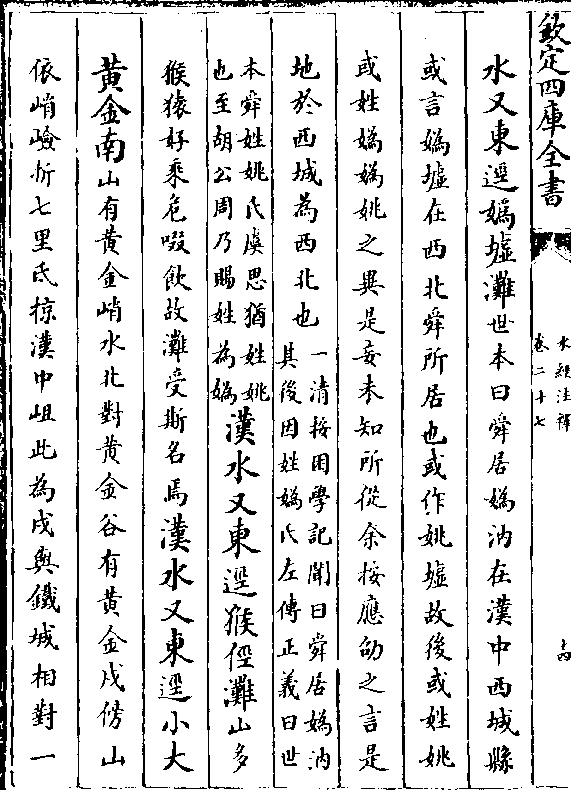 欽定四庫全書
水經注釋
卷二十七
十四
水又東逕媯墟灘世本曰舜居媯汭在漢中西城縣
或言媯墟在西北舜所居也或作姚墟故後或姓姚
或姓媯媯姚之異是妄未知所從余按應劭之言是
地於西城為西北也一清按困學記聞曰舜居媯汭
其後因姓媯氏左傳正義曰世
本舜姓姚氏虞思猶姓姚
也至胡公周乃賜姓為媯漢水又東逕猴徑灘山多
猴猿好乘危啜飲故灘受斯名焉漢水又東逕小大
黃金南山有黃金峭水北對黃金谷有黃金戍傍山
依峭嶮折七里氐掠漢中岨此為戍與鐵城相對一